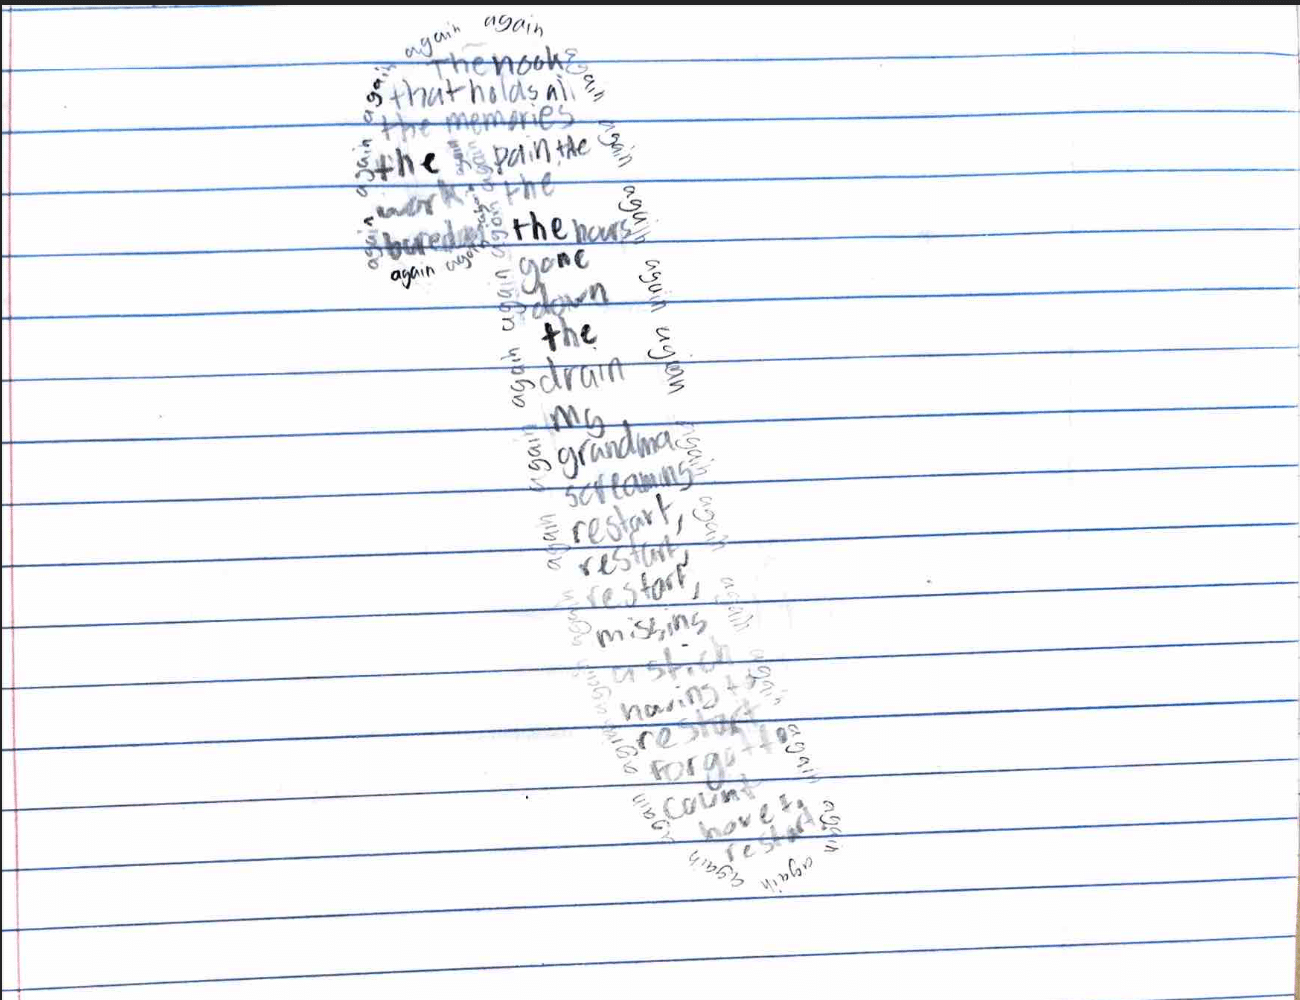 again again
The nook
that holds all
the memories
the pain, the
work the
boredom the hours
gone
down
the
drain
my
grandma
screaming
restart,
restart,
restart,
missing
a stich
having to
restart
forgot to
count
have to
restart
again again again again again again again again again again again
again again again again again again again again again again again
again again again again again